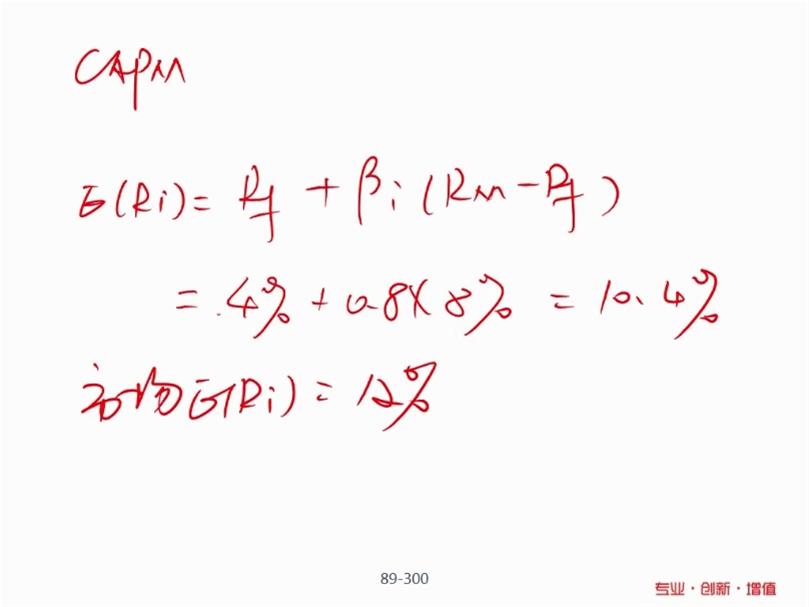 CAPM
E(Ri) = Rf + βi (RM - Rf)
= 4% + 0.8 X 8% = 10.4%
市场E(Ri) = 12%
89-300
专业·创新·增值